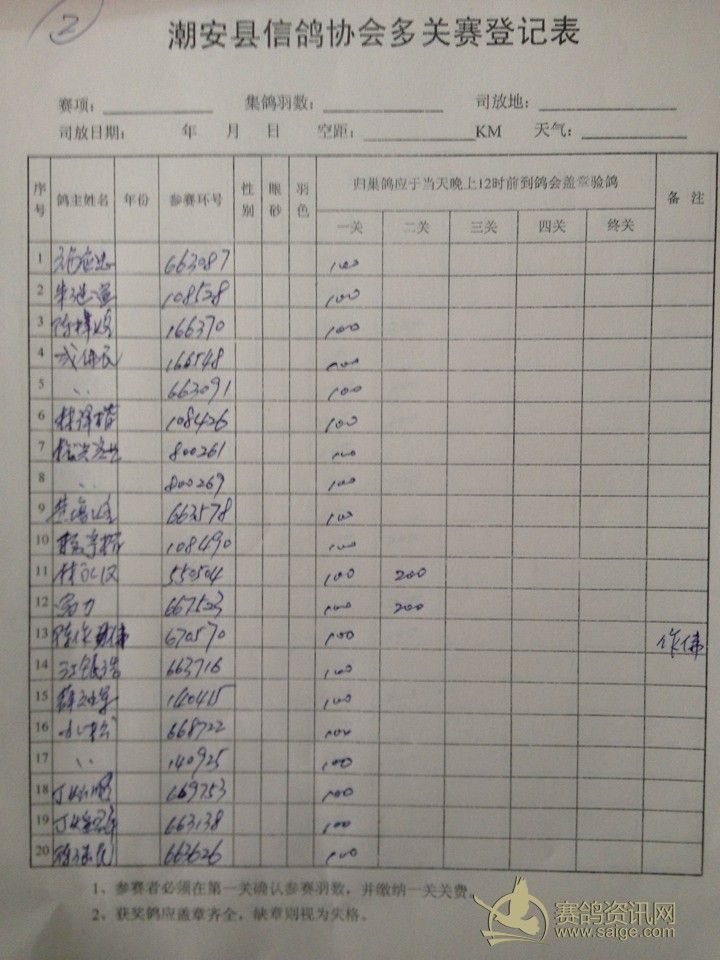 2
潮安县信鸽协会多关赛登记表
赛项: 集鸽羽数: 司放地:
司放日期: 年 月 日 空距: KM 天气:
序号 鸽主姓名 年份 参赛环号 性别 眼砂 羽色 归巢鸽应于当天晚上12时前到鸽会盖章验鸽 备 注
一关 二关 三关 四关 终关
1 663087 100
2 108528 100
3 166370 100
4 166548 100
5 〃 663091 100
6 108426 100
7 800261 100
8 〃 800269 100
9 663578 100
10 108490 100
11 550504 100 200
12 667523 100 200
13 670570 100 作伟
14 663716 100
15 140415 100
16 668722 100
17 〃 140925 100
18 669753 100
19 663138 100
20 663626 100
1、参赛者必须在第一关确认参赛羽数，并缴纳一关关费。
2、获奖鸽应盖章齐全，缺章则视为失格。
赛鸽资讯网
www.saige.com